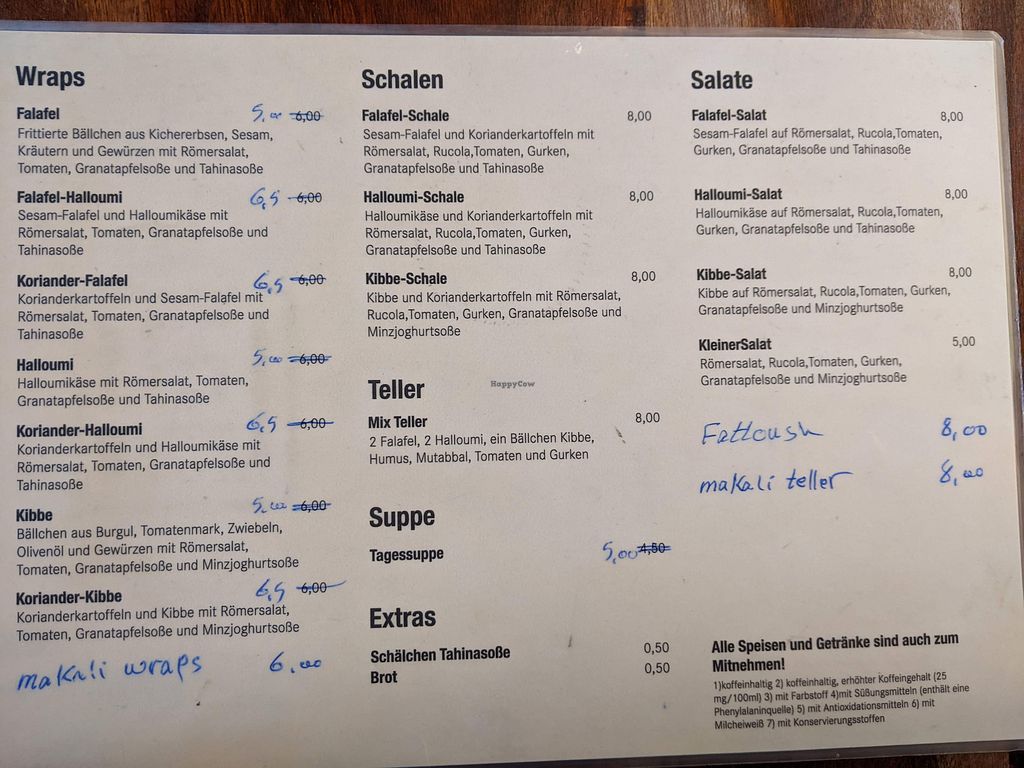 Wraps
Falafel 5,00 6,00
Frittierte Bällchen aus Kichererbsen, Sesam,
Kräutern und Gewürzen mit Römersalat,
Tomaten, Granatapfelsoße und Tahinasoße
Falafel-Halloumi 6,5 6,00
Sesam-Falafel und Halloumikäse mit
Römersalat, Tomaten, Granatapfelsoße und
Tahinasoße
Koriander-Falafel 6,5 6,00
Korianderkartoffeln und Sesam-Falafel mit
Römersalat, Tomaten, Granatapfelsoße und
Tahinasoße
Halloumi 5,00 6,00
Halloumikäse mit Römersalat, Tomaten,
Granatapfelsoße und Tahinasoße
Koriander-Halloumi 6,5 6,00
Korianderkartoffeln und Halloumikäse mit
Römersalat, Tomaten, Granatapfelsoße und
Tahinasoße
Kibbe 5,00 6,00
Bällchen aus Burgul, Tomatenmark, Zwiebeln,
Olivenöl und Gewürzen mit Römersalat,
Tomaten, Granatapfelsoße und Minzjoghurtsoße
Koriander-Kibbe 6,5 6,00
Korianderkartoffeln und Kibbe mit Römersalat,
Tomaten, Granatapfelsoße und Minzjoghurtsoße
makali wraps 6,00
Schalen
Falafel-Schale 8,00
Sesam-Falafel und Korianderkartoffeln mit
Römersalat, Rucola,Tomaten, Gurken,
Granatapfelsoße und Tahinasoße
Halloumi-Schale 8,00
Halloumikäse und Korianderkartoffeln mit
Römersalat, Rucola,Tomaten, Gurken,
Granatapfelsoße und Tahinasoße
Kibbe-Schale 8,00
Kibbe und Korianderkartoffeln mit Römersalat,
Rucola,Tomaten, Gurken, Granatapfelsoße und
Minzjoghurtsoße
Teller
HappyCow
Mix Teller 8,00
2 Falafel, 2 Halloumi, ein Bällchen Kibbe,
Humus, Mutabbal, Tomaten und Gurken
Suppe
Tagessuppe 5,00 4,50
Extras
Schälchen Tahinasoße 0,50
Brot 0,50
Salate
Falafel-Salat 8,00
Sesam-Falafel auf Römersalat, Rucola,Tomaten,
Gurken, Granatapfelsoße und Tahinasoße
Halloumi-Salat 8,00
Halloumikäse auf Römersalat, Rucola,Tomaten,
Gurken, Granatapfelsoße und Tahinasoße
Kibbe-Salat 8,00
Kibbe auf Römersalat, Rucola,Tomaten, Gurken,
Granatapfelsoße und Minzjoghurtsoße
KleinerSalat 5,00
Römersalat, Rucola,Tomaten, Gurken,
Granatapfelsoße und Minzjoghurtsoße
Fattoush 8,00
makali teller 8,00
Alle Speisen und Getränke sind auch zum
Mitnehmen!
1)koffeinhaltig 2) koffeinhaltig, erhöhter Koffeingehalt (25
mg/100ml) 3) mit Farbstoff 4)mit Süßungsmitteln (enthält eine
Phenylalaninquelle) 5) mit Antioxidationsmitteln 6) mit
Milcheiweiß 7) mit Konservierungsstoffen